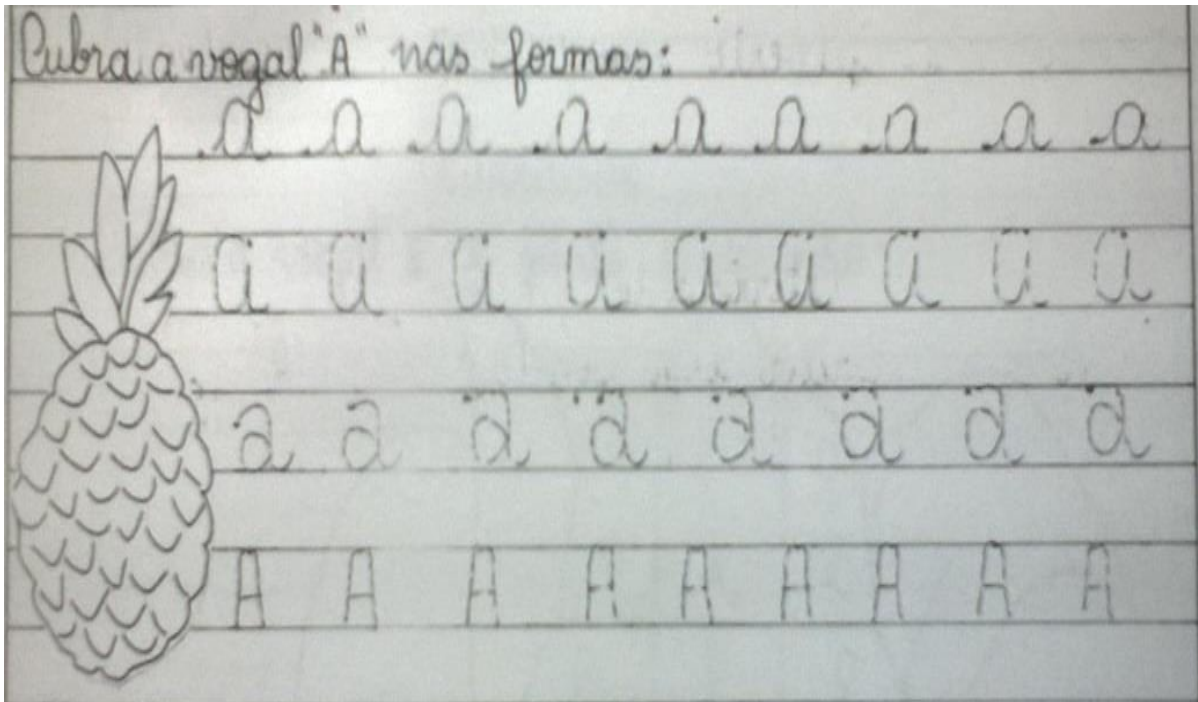 Cubra a vogal "A" nas formas:
a a a a a a a a a
a a a a a a a a a
a a a a a a a a
A A A A A A A A A